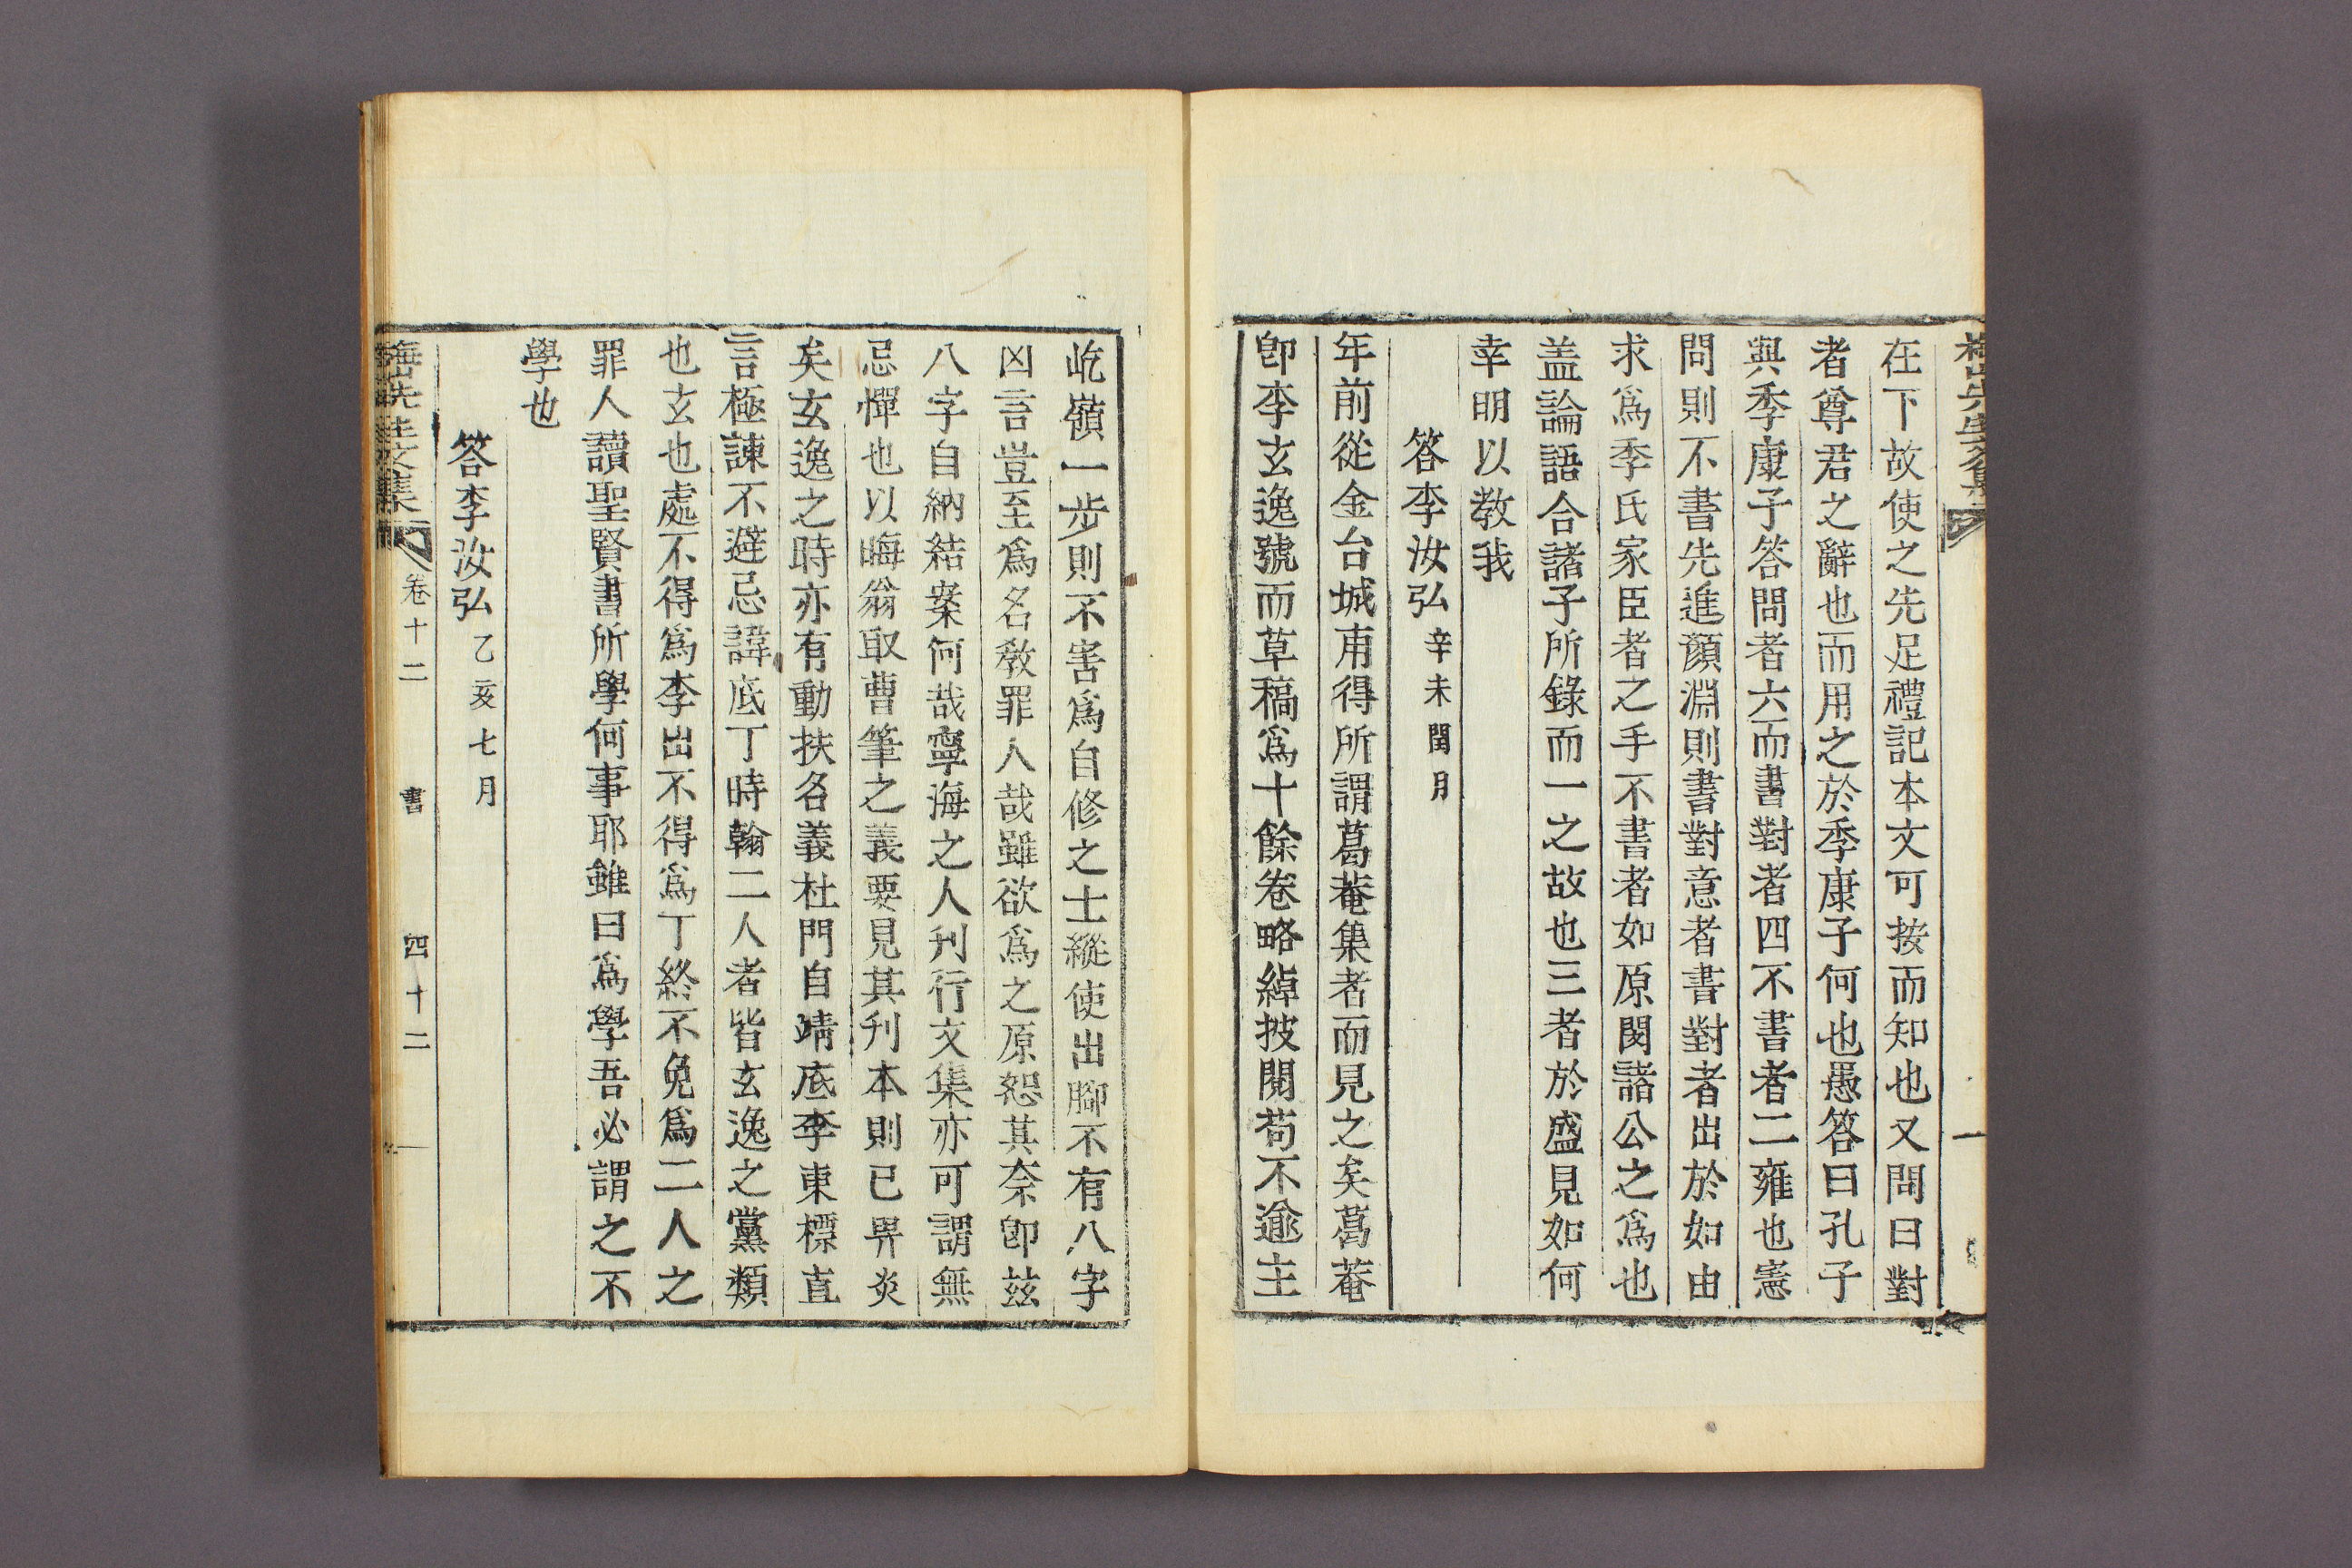 在下故使之先足禮記本文可按而知也又問曰對
者尊君之辭也而用之於季康子何也愚答曰孔子
與季康子答問者六而書對者四不書者二雍也憲
問則不書先進顏淵則書對意者書對者出於如由
求爲季氏家臣者之手不書者如原閔諸公之爲也
盖論語合諸子所錄而一之故也三者於盛見如何
幸明以教我
答李汝弘 辛未閏月
年前從金台城甫得所謂葛菴集者而見之矣葛菴
卽李玄逸號而草稿爲十餘卷略綽披閱苟不逾主
屹嶺一步則不害爲自修之士縱使出脚不有八字
凶言豈至爲名敎罪人哉雖欲爲之原恕其奈卽玆
八字自納結案何哉寧海之人刋行文集亦可謂無
忌憚也以晦翁取曹筆之義要見其刋本則已畀炎
矣玄逸之時亦有動扶名義杜門自靖底李東標直
言極諫不避忌諱底丁時翰二人者皆玄逸之黨類
也玄也處不得爲李出不得爲丁終不免爲二人之
罪人讀聖賢書所學何事耶雖曰爲學吾必謂之不
學也
答李汝弘 乙亥七月
梅山先生文集 卷十二 書 四十二